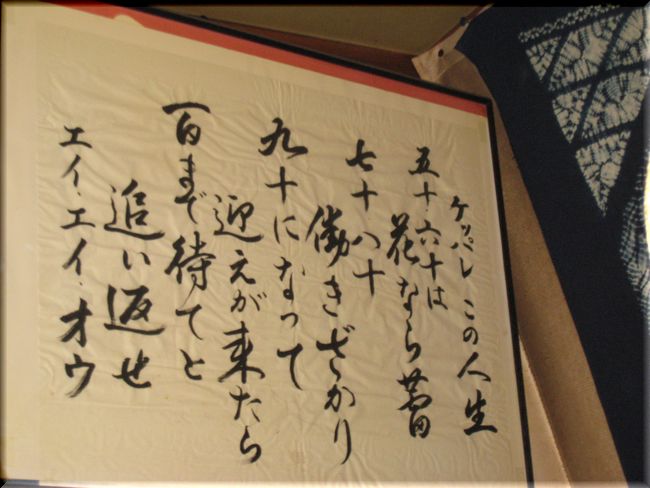 ケッパレ この人生
五十・六十は
花なら蕾
七十八十
働きざかり
九十になって
迎えが来たら
百まで待てと
追い返せ
エイ・エイ・オウ